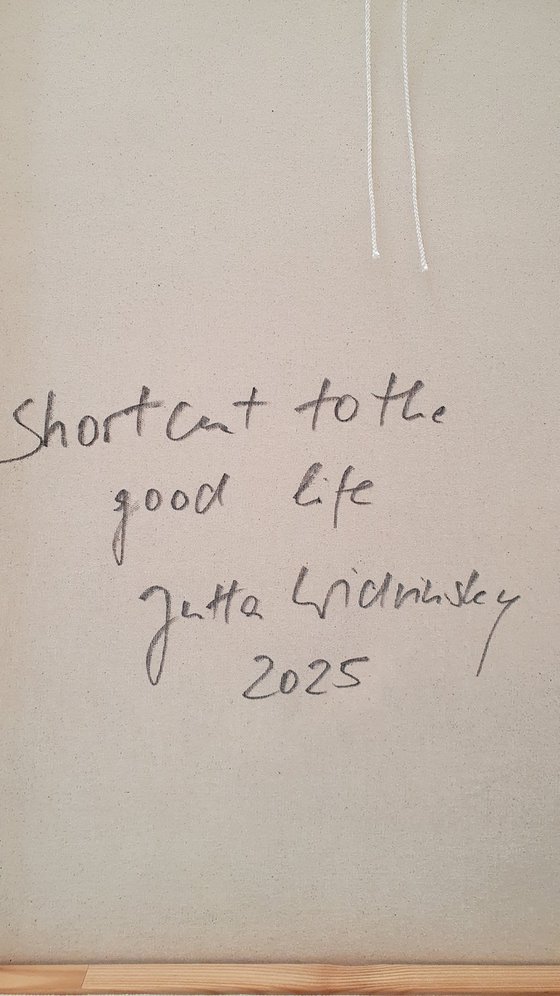 Shortcut to the
good life
Jutta Widrinsky
2025